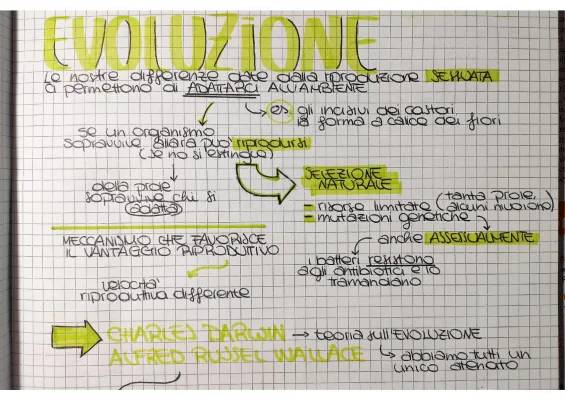 EVOLUZIONE
Le nostre differenze date dalla riproduzione SESSUATA
ci permettono di ADATTARCI ALL'AMBIENTE
es gli incisivi dei castori
la forma a calice dei fiori
se un organismo
sopravvive allora può riprodursi
(se no si estingue)
SELEZIONE
NATURALE
della prole
sopravvive chi si
adatta
- risorse limitate (tanta prole, alcuni muoiono)
- mutazioni genetiche
anche ASSESSUALMENTE
MECCANISMO CHE FAVORISCE
IL VANTAGGIO RIPRODUTTIVO
i batteri resistono
agli antibiotici e lo
tramandano
velocità
riproduttiva differente
CHARLES DARWIN → teoria sull'EVOLUZIONE
ALFRED RUSSEL WALLACE
abbiamo tutti un
unico antenato